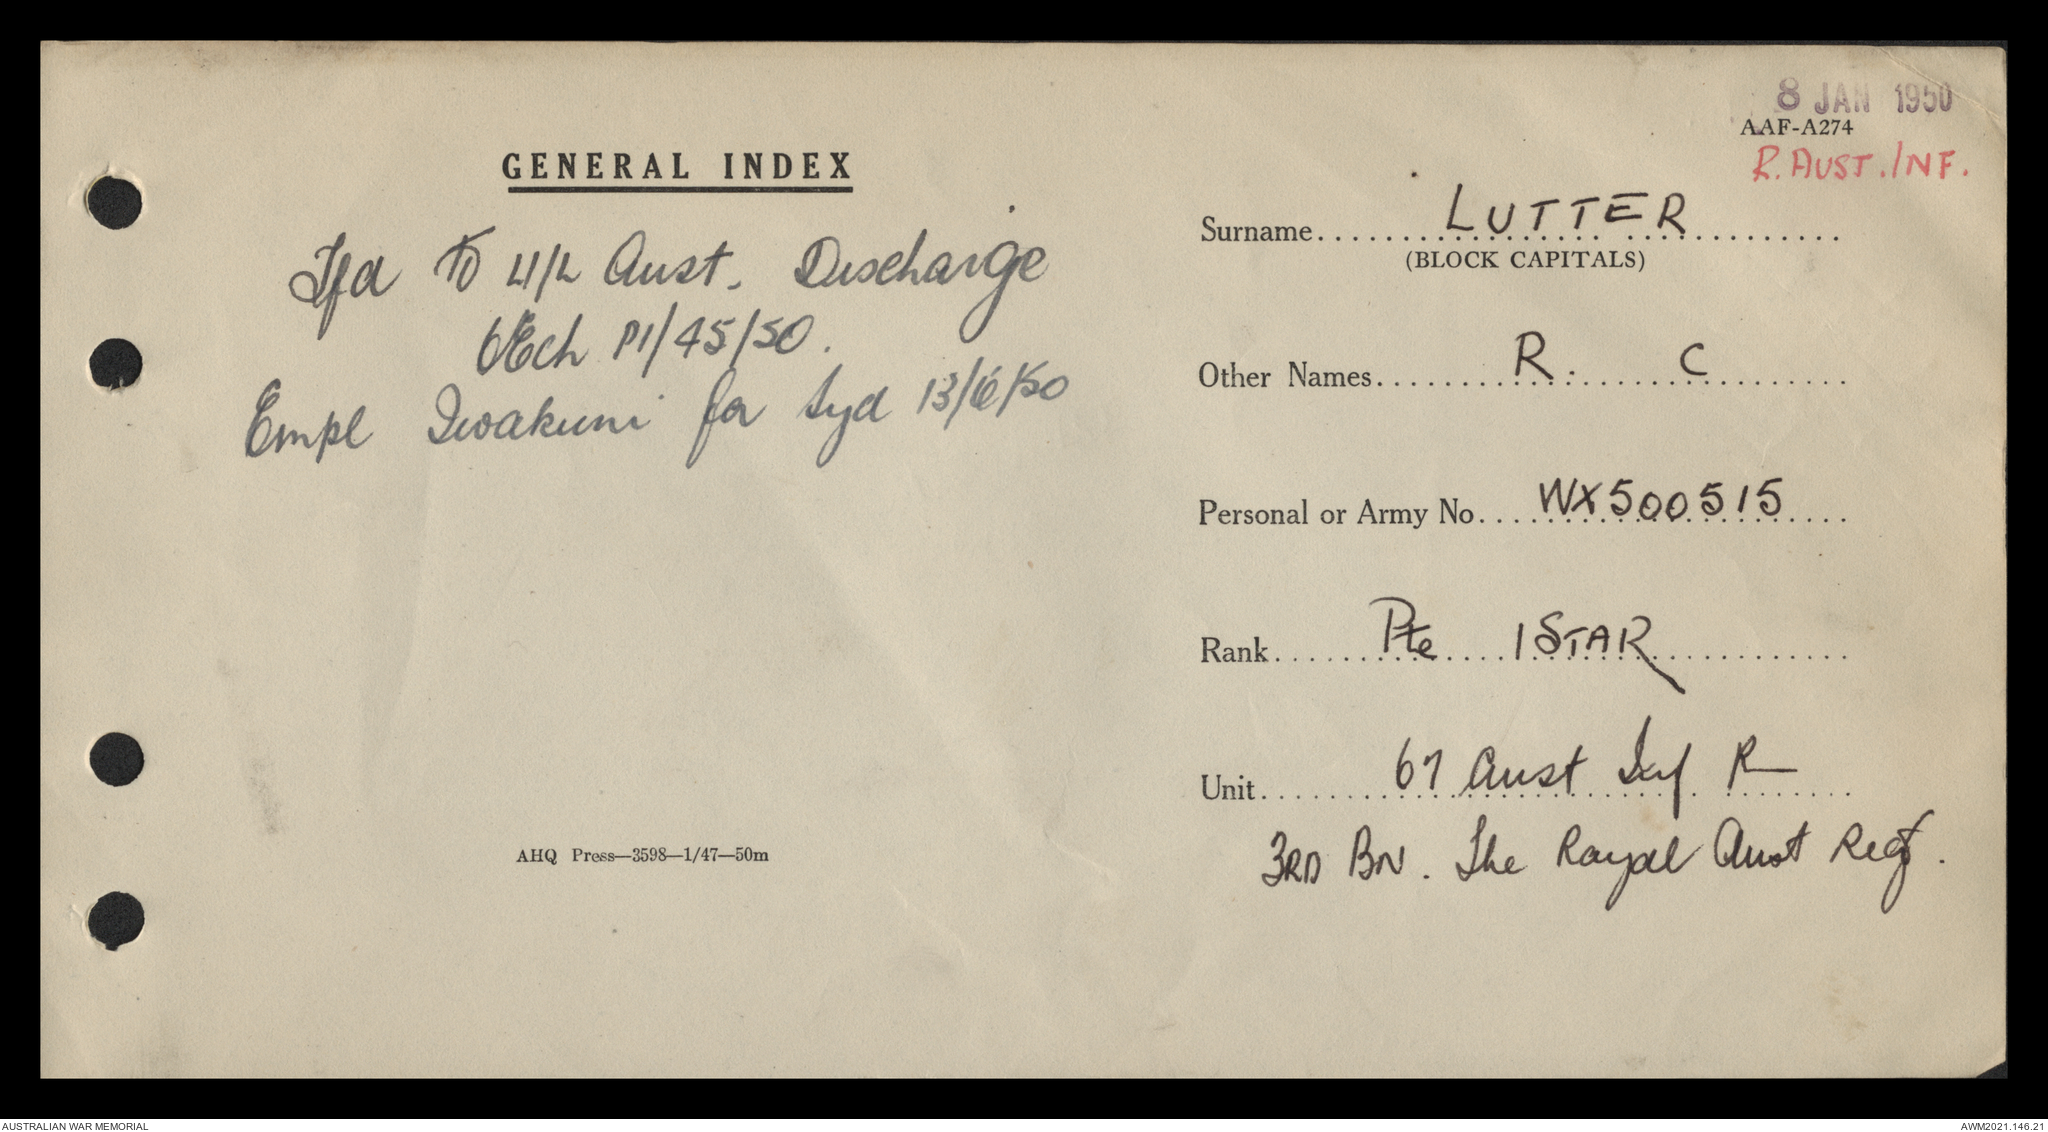 GENERAL INDEX
Tfd to L/L Aust. Discharge
Ech P1/45/50.
Empl Iwakuni for Syd 13/6/50
AHQ Press—3598—1/47—50m
8 JAN 1950
AAF-A274
R. AUST. INF.
Surname LUTTER
(BLOCK CAPITALS)
Other Names R. C
Personal or Army No. WX500515
Rank Pte 1 STAR
Unit 67 Aust Inf
3RD BN. The Royal Aust Regt.
AUSTRALIAN WAR MEMORIAL
AWM2021.146.21